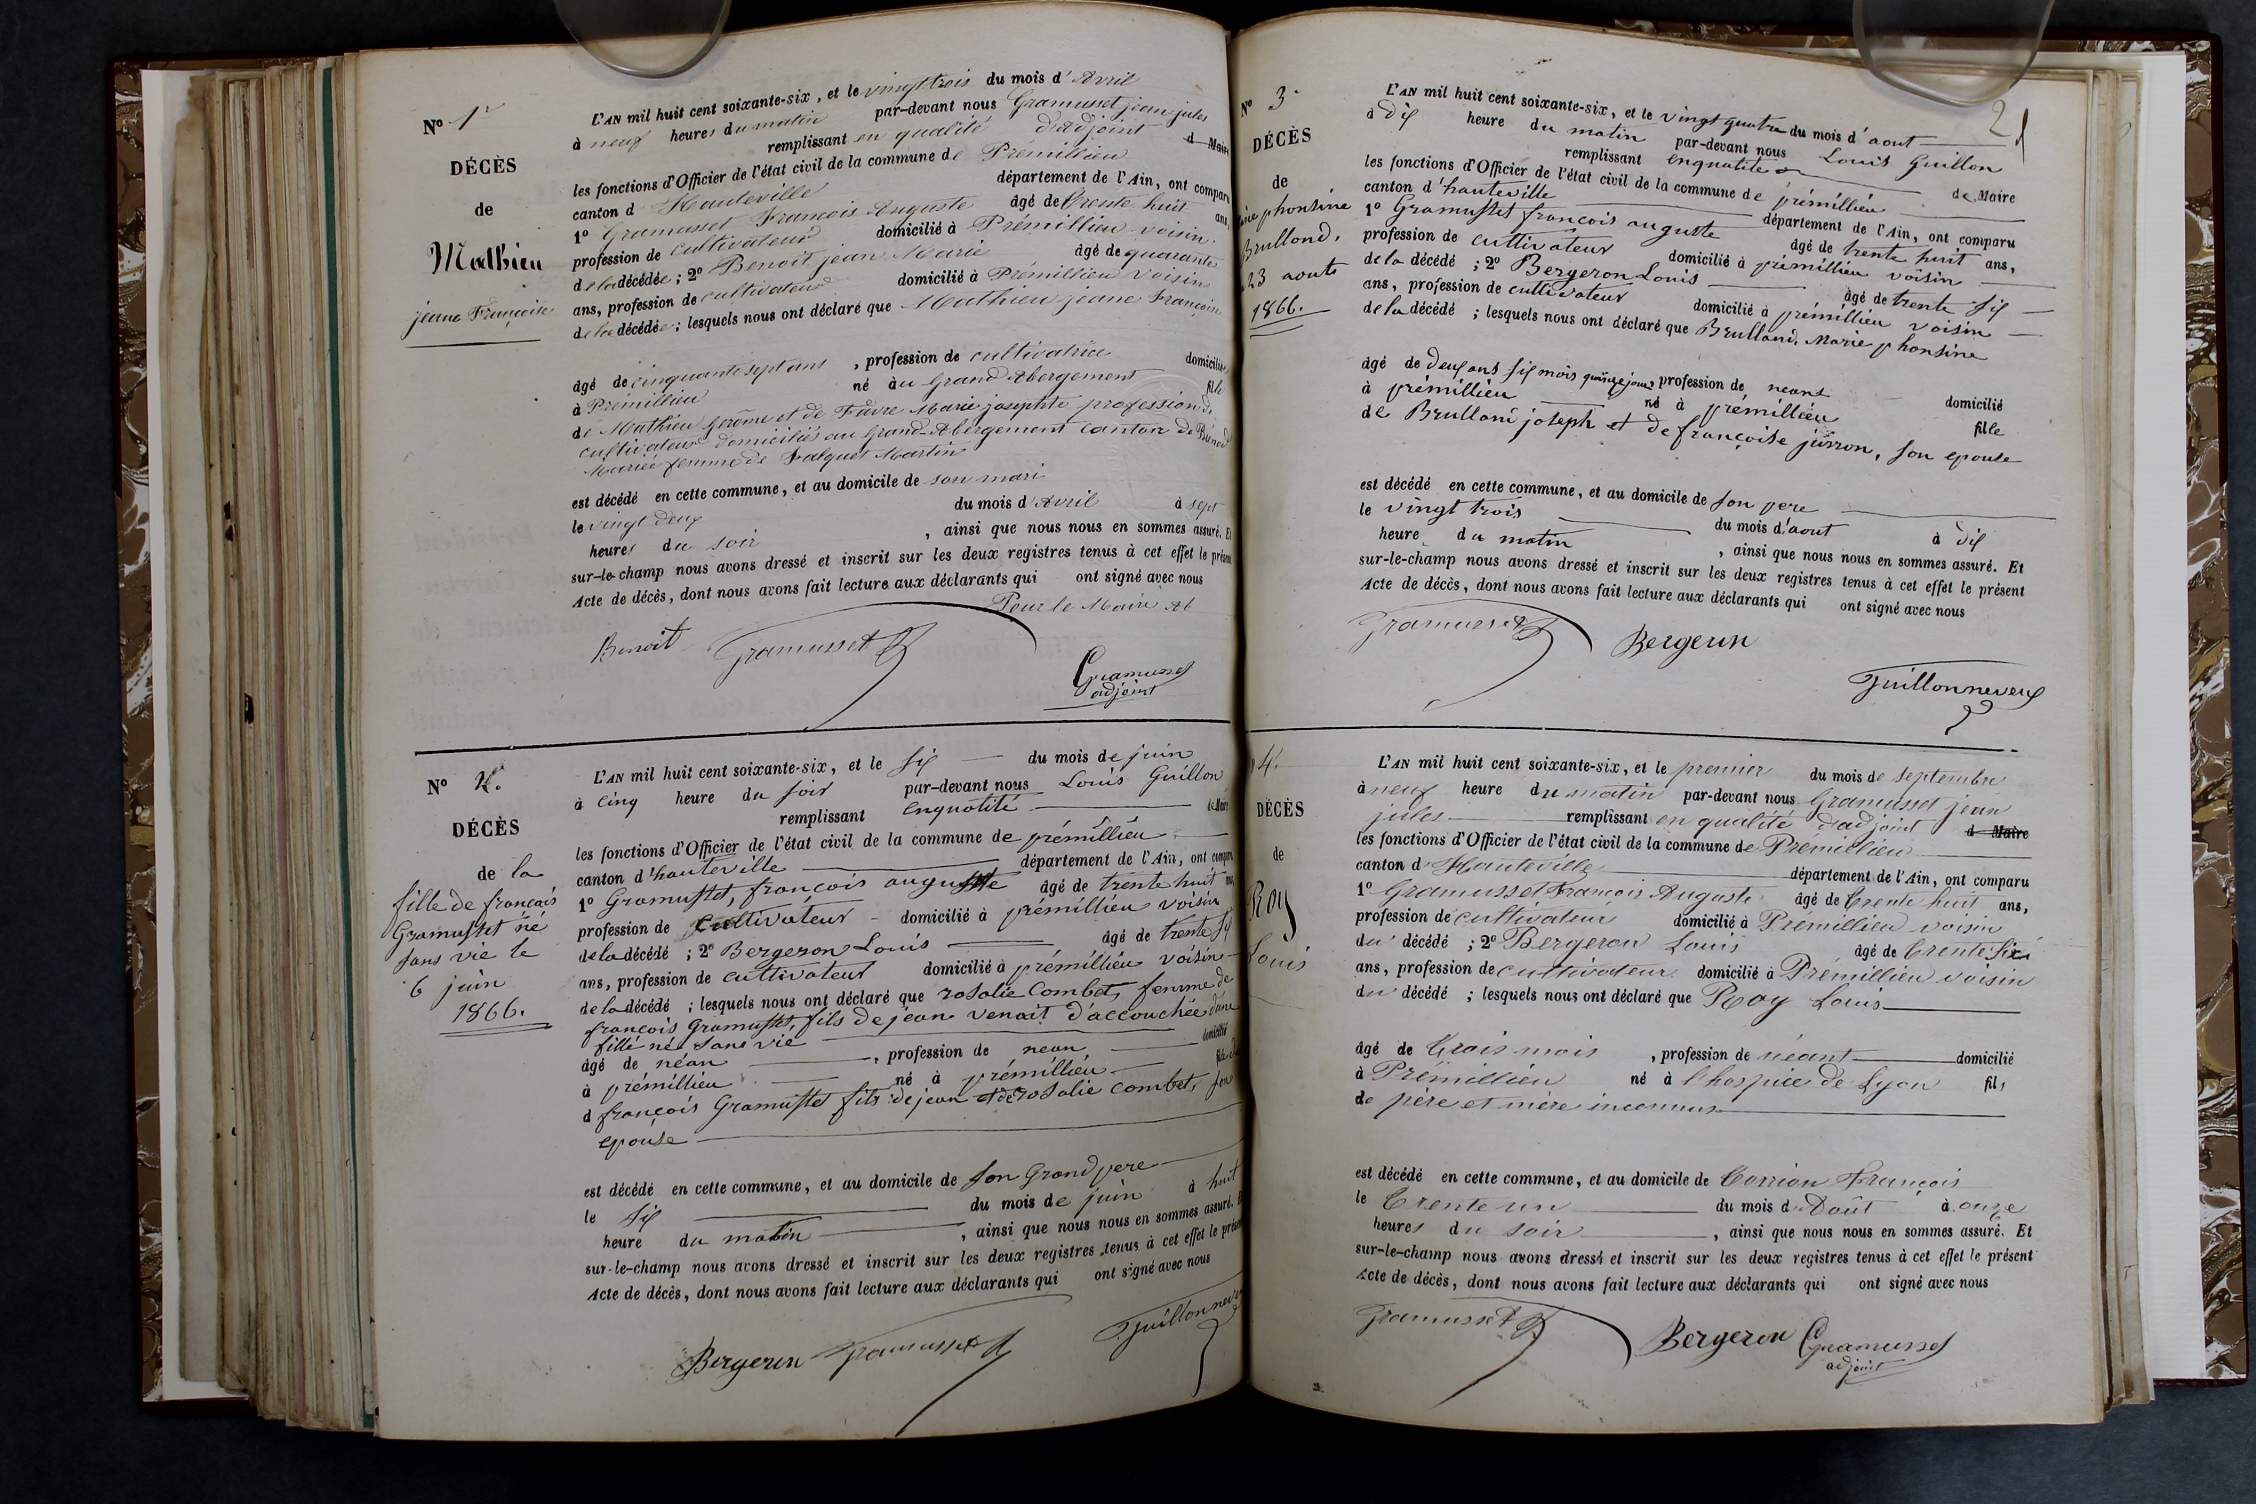 N° 1er
DÉCÈS
de
Mathieu
jeane Françoise
L'AN mil huit cent soixante-six, et le vingt trois du mois d'Avril
à neuf heures du matin par-devant nous Gramusset jean jules
remplissant en qualité d'adjoint d Maire
les fonctions d'Officier de l'état civil de la commune de Prémillieu
canton d Hauteville département de l'Ain, ont comparu
1° Gramusset Francois Auguste âgé de trente huit ans,
profession de cultivateur domicilié à Prémillieu voisin
de la décédée; 2° Benoit jean Marie âgé de quarante
ans, profession de cultivateur domicilié à Prémillieu voisin
de la décédée; lesquels nous ont déclaré que Mathieu jeane Françoise
âgé de cinquante sept ans, profession de cultivatrice domicilié
à Prémillieu né au Grand Abergement fille
de Mathieu Gerôme et de Favre Marie josephte profession de
cultivateurs domiciliés au Grand-Abergement canton de
Mariée femme de Falquet Martin
est décédé en cette commune, et au domicile de son mari
le vingt deux du mois d'Avril à sept
heures du soir, ainsi que nous nous en sommes assuré. Et
sur-le-champ nous avons dressé et inscrit sur les deux registres tenus à cet effet le présent
Acte de décès, dont nous avons fait lecture aux déclarants qui ont signé avec nous
Pour le Maire
Benoit Gramusset
Gramusset
adjoint
N° 2.
DÉCÈS
de la
fille de françois
Gramusset né
sans vie le
6 juin
1866.
L'AN mil huit cent soixante-six, et le six du mois de juin
à cinq heure du soir par-devant nous Louis Guillon
remplissant enqualité de Maire
les fonctions d'Officier de l'état civil de la commune de prémillieu
canton d'hauteville département de l'Ain, ont comparu
1° Gramusset, françois auguste âgé de trente huit ans,
profession de cultivateur domicilié à prémillieu voisin
de la décédé; 2° Bergeron Louis âgé de trente six
ans, profession de cultivateur domicilié à prémillieu voisin
de la décédé; lesquels nous ont déclaré que rosalie Combet, femme de
françois Gramusset, fils de jean venait d'accouchée d'une
fille née sans vie
âgé de néan, profession de nean domicilié
à prémillieu né à prémillieu fille de
d françois Gramusset fils de jean et de rosalie combet, son
epouse
est décédé en cette commune, et au domicile de son Grand pere
le six du mois de juin à huit
heure du matin, ainsi que nous nous en sommes assuré. Et
sur-le-champ nous avons dressé et inscrit sur les deux registres tenus à cet effet le présent
Acte de décès, dont nous avons fait lecture aux déclarants qui ont signé avec nous
Bergeron Gramusset Guillon neveu
21
N° 3
DÉCÈS
de
phonsine
Brulland,
23 aoute
1866.
L'AN mil huit cent soixante-six, et le vingt quatre du mois d'aout
à dix heure du matin par-devant nous Louis Guillon
remplissant enqualité de Maire
les fonctions d'Officier de l'état civil de la commune de prémillieu
canton d'hauteville département de l'Ain, ont comparu
1° Gramusset françois auguste âgé de trente huit ans,
profession de cultivateur domicilié à prémillieu voisin
de la décédé; 2° Bergeron Louis âgé de trente six
ans, profession de cultivateur domicilié à prémillieu voisin
de la décédé; lesquels nous ont déclaré que Brulland, Marie phonsine
âgé de deux ans six mois quinze jours profession de neant domicilié
à prémillieu né à prémillieu fille
de Brulland joseph et de françoise jusson, son epouse
est décédé en cette commune, et au domicile de son pere
le vingt trois du mois d'aout à dix
heure du matin, ainsi que nous nous en sommes assuré. Et
sur-le-champ nous avons dressé et inscrit sur les deux registres tenus à cet effet le présent
Acte de décès, dont nous avons fait lecture aux déclarants qui ont signé avec nous
Gramusset Bergeron
Guillon neveu
4.
DÉCÈS
de
Roy
Louis
L'AN mil huit cent soixante-six, et le premier du mois de septembre
à neuf heure du matin par-devant nous Gramusset jean
jules remplissant en qualité d'adjoint d Maire
les fonctions d'Officier de l'état civil de la commune de Prémillieu
canton d'Hauteville département de l'Ain, ont comparu
1° Gramusset Francois Auguste âgé de trente huit ans,
profession de cultivateur domicilié à Prémillieu voisin
du décédé; 2° Bergeron Louis âgé de trente six
ans, profession de cultivateur domicilié à Prémillieu voisin
du décédé; lesquels nous ont déclaré que Roy Louis
âgé de trois mois, profession de néant domicilié
à Prémillieu né à l'hospice de Lyon fils
de père et mère inconnus
est décédé en cette commune, et au domicile de Corrion François
le trente un du mois d'Août à onze
heures du soir, ainsi que nous nous en sommes assuré. Et
sur-le-champ nous avons dressé et inscrit sur les deux registres tenus à cet effet le présent
Acte de décès, dont nous avons fait lecture aux déclarants qui ont signé avec nous
Gramusset Bergeron Gramusset
adjoint